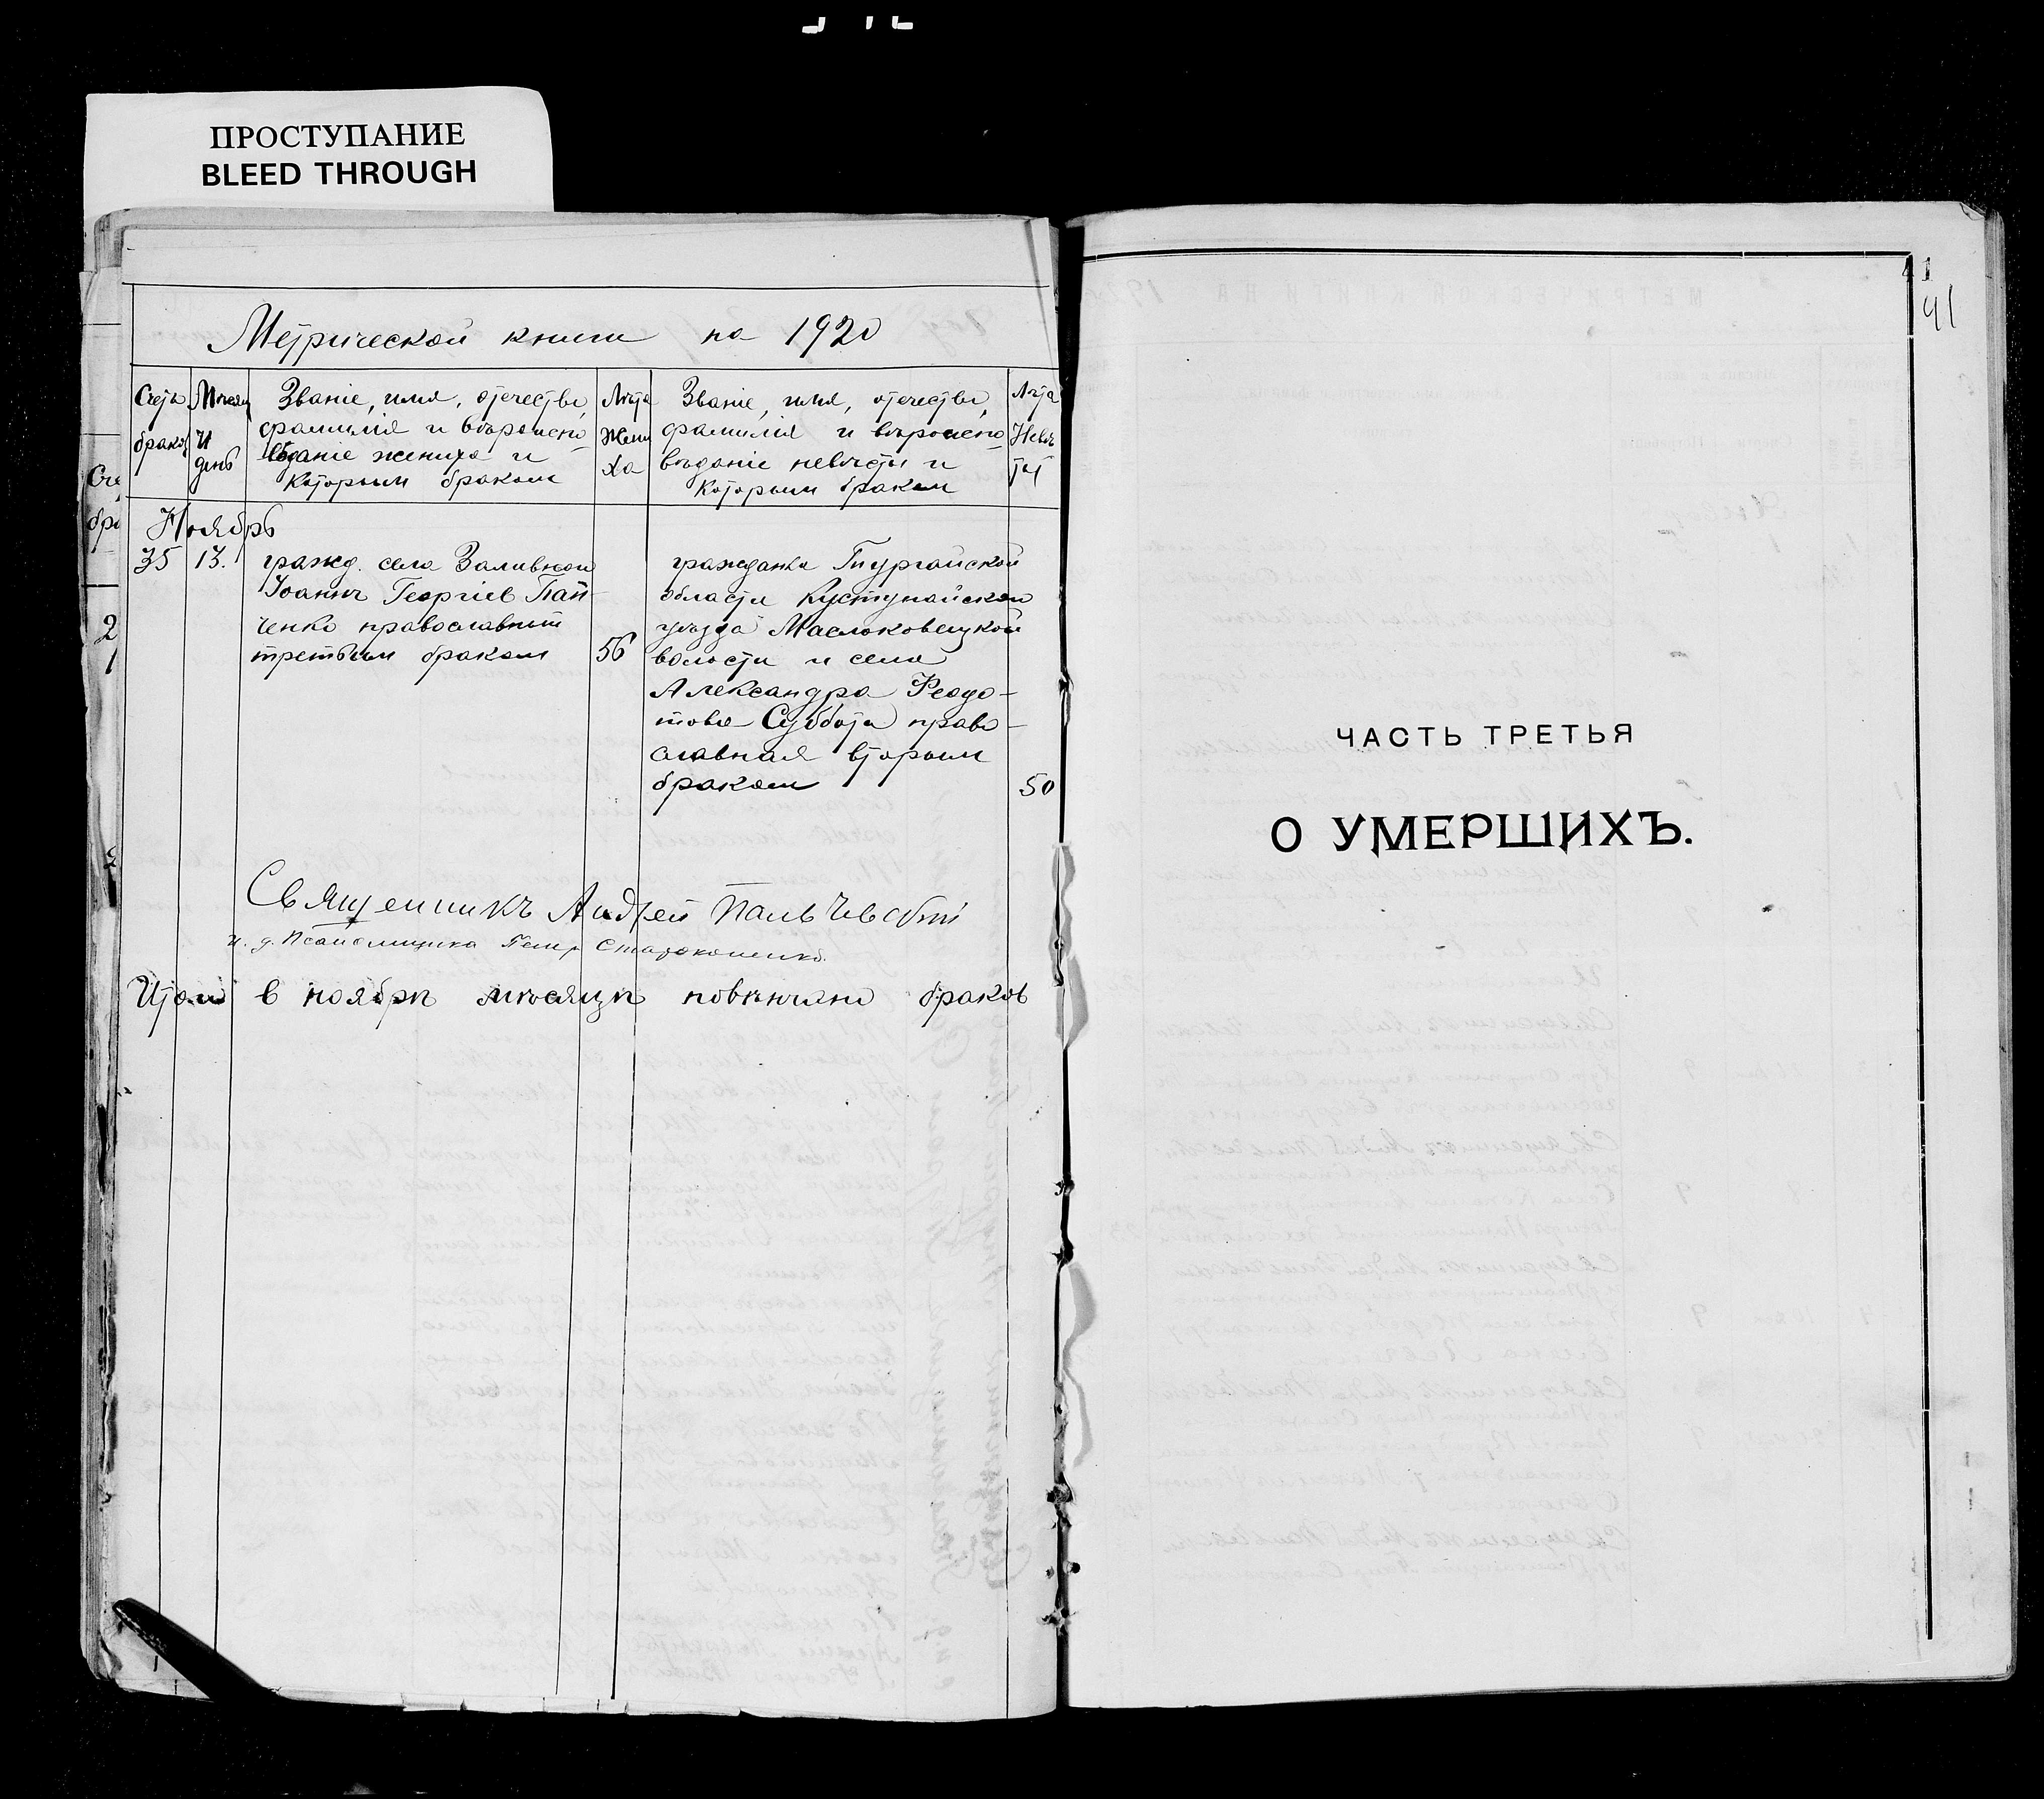 ПРОСТУПАНИЕ
BLEED THROUGH
Метрической книги на 1920
Счетъ браковъ
Мѣсяц и день
Званіе, имя, отечество,
фамилія и вѣроиспо-
вѣданіе жениха и
которым браком
Лѣта жени ха
Званіе, имя, отечество,
фамилія и вѣроиспо-
вѣданіе невѣсты и
которым браком
Лѣта Невѣс ты
Ноябрь
35 13.
гражд. села Заливной
Іоаннъ Георгіев Пан-
ченко православный
третьим браком 56
гражданка Тургайской
области Кустанайскаго
уѣзда Маслоковецкой
волости и села
Александра Феодо-
това Суббота право-
славная вторым
браком 50
Священникъ Андрей
и. д. Псаломщика Петр Староконенко.
Итого в ноябрѣ мѣсяцѣ повѣнчано браков
41
41
ЧАСТЬ ТРЕТЬЯ
О УМЕРШИХЪ.